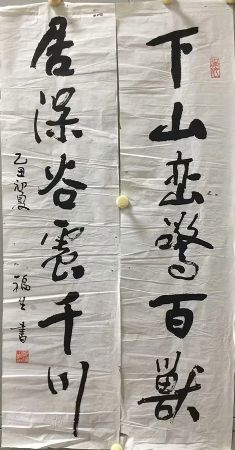 下山峦驚百獸
居深谷震千川
乙丑初夏
福生書